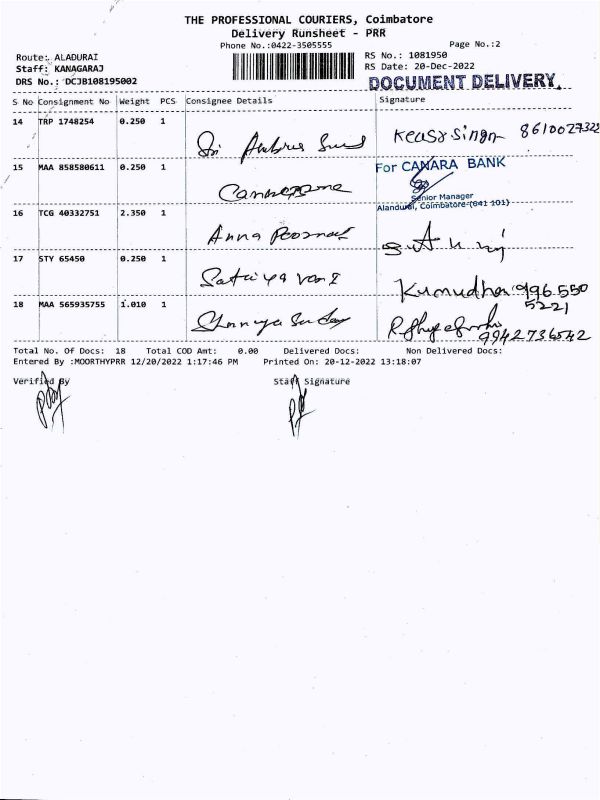 THE PROFESSIONAL COURIERS, Coimbatore
Delivery Runsheet - PRR
Phone No.:0422-3505555
Page No.:2
Route: ALADURAI
RS No.: 1081950
Staff: KANAGARAJ
RS Date: 20-Dec-2022
DRS No.: DCJB108195002
DOCUMENT DELIVERY.
S No Consignment No Weight PCS Consignee Details Signature
14 TRP 1748254 0.250 1
8610027322
15 MAA 858580611 0.250 1
For CANARA BANK
Senior Manager
Alandurai, Coimbatore-(641 101)
16 TCG 40332751 2.350 1 Anna
17 STY 65450 0.250 1
Kumudha 996 550
5221
18 MAA 565935755 1.010 1
9942736542
Total No. Of Docs: 18 Total COD Amt: 0.00 Delivered Docs: Non Delivered Docs:
Entered By :MOORTHYPRR 12/20/2022 1:17:46 PM Printed On: 20-12-2022 13:18:07
Verified By Staff Signature